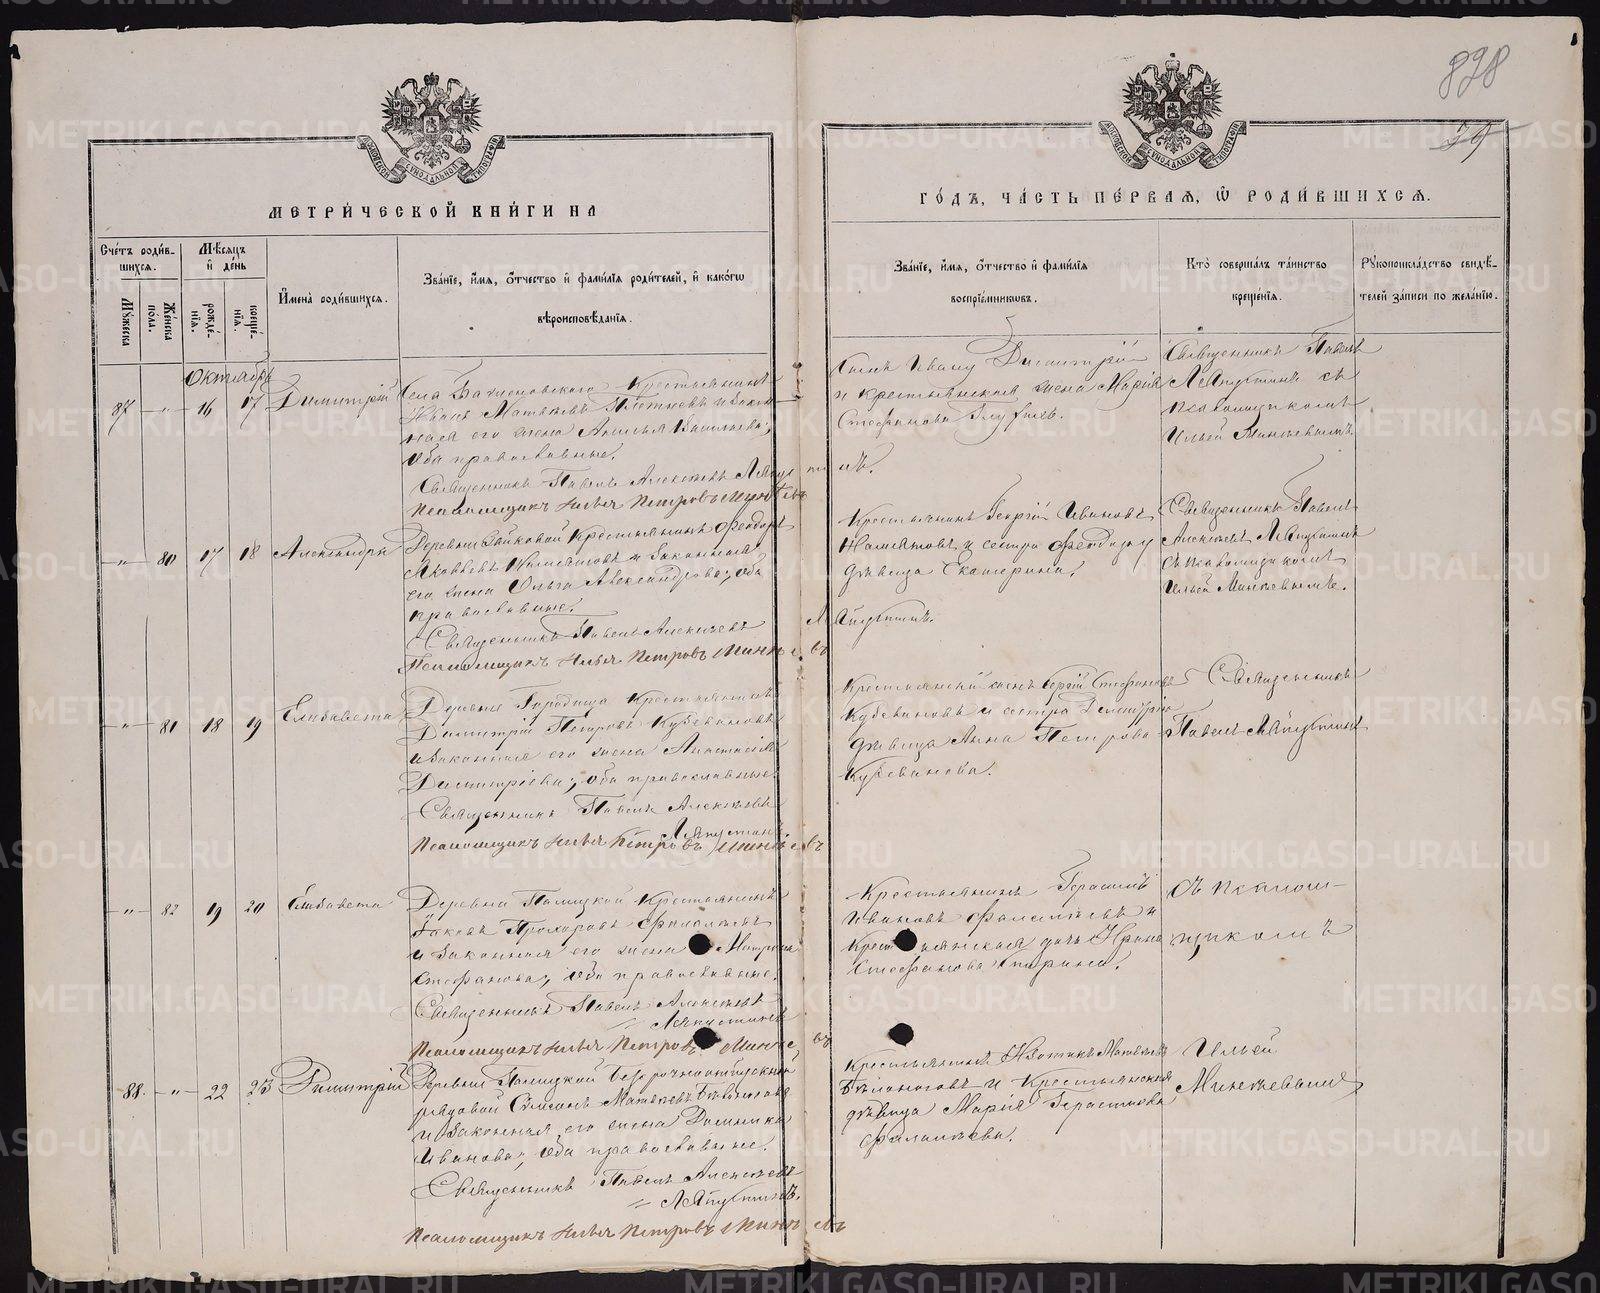 898
39
МОСКОВСКОЙ СѴНОДАЛЬНОЙ ТИПОГРАФІИ
МОСКОВСКОЙ СѴНОДАЛЬНОЙ ТИПОГРАФІИ
МЕТРИ́ЧЕСКОЙ КНИ́ГИ НА
ГО́ДЪ, ЧА́СТЬ ПЕ́РВАЯ, Ѽ РОДИ́ВШИХСЯ.
Сче́тъ роди́в-
шихся.
Мꙋ́жеска
Же́нска
по́ла.
Мѣ́сяцъ
и҆ де́нь
рожде́-
нїя.
креще́-
нїя.
И҆мена̀ роди́вшихся.
Зва́нїе, и҆́мя, о҆́тчество и҆ фами́лїя роди́телей, и҆ како́гѡ
вѣроисповѣ́данїя.
Зва́нїе, и҆́мя, о҆́тчество и҆ фами́лїя
воспрїе́мниковъ.
Кто̀ соверша́лъ та́инство
креще́нїя.
Рꙋкоприкла́дство свидѣ́-
телей за́писи по жела́нїю.
Октябрь
87 -"- 16 17 Димитрій
Села крестьянинъ
Иванъ Матвѣевъ и закон-
ная его жена Васильева;
оба православные.
Священникъ Павелъ Алексѣевъ Ляпустинъ.
Псаломщикъ Илья Петровъ Минѣевъ
Сынъ Ивану Димитрій
и крестьянская жена Марія
Стефанова
Священникъ Павелъ
Ляпустинъ съ
псаломщикомъ
Ильей Минѣевымъ.
-"- 80 17 18 Александра
Деревни крестьянинъ Феодоръ
Яковлевъ и законная
его жена Ольга Александрова; оба
православные.
Священникъ Павелъ Алексѣевъ Ляпустинъ.
Псаломщикъ Илья Петровъ Минѣевъ
Крестьянинъ Георгій Ивановъ
и сестра Феодору
дѣвица Екатерина.
Священникъ Павелъ
Алексѣевъ Ляпустинъ
съ псаломщикомъ
Ильей Минѣевымъ.
-"- 81 18 19 Елисавета
Деревни Городища крестьянинъ
Димитрій Петровъ Кубевановъ
и законная его жена Анастасія
Димитріева; оба православные.
Священникъ Павелъ Алексѣевъ
Ляпустинъ.
Псаломщикъ Илья Петровъ Минѣевъ
Крестьянскій сынъ Сергій Стефановъ
Кубевановъ и сестра Димитрію
дѣвица Анна Петрова
Кубеванова.
Священникъ
Павелъ Ляпустинъ
-"- 82 19 20 Елисавета
Деревни Палицкой крестьянинъ
Іаковъ Прохоровъ Фалалѣевъ
и законная его жена Матрона
Стефанова; оба православные.
Священникъ Павелъ Алексѣевъ
Ляпустинъ
Псаломщикъ Илья Петровъ Минѣевъ
Крестьянинъ Герасимъ
Ивановъ Фалалѣевъ и
крестьянская дочь Ирина
Стефанова
съ псалом-
щикомъ
88. -"- 22 23 Димитрій
Деревни Палицкой безсрочноотпускной
рядовой Симеонъ Матвѣевъ Бѣлоноговъ
и законная его жена Домника
Иванова; оба православные.
Священникъ Павелъ Алексѣевъ
Ляпустинъ.
Псаломщикъ Илья Петровъ Минѣевъ
Крестьянинъ Матвѣевъ
Бѣлоноговъ и крестьянская
дѣвица Марія Герасимова
Фалалѣева.
Ильей
Минѣевымъ